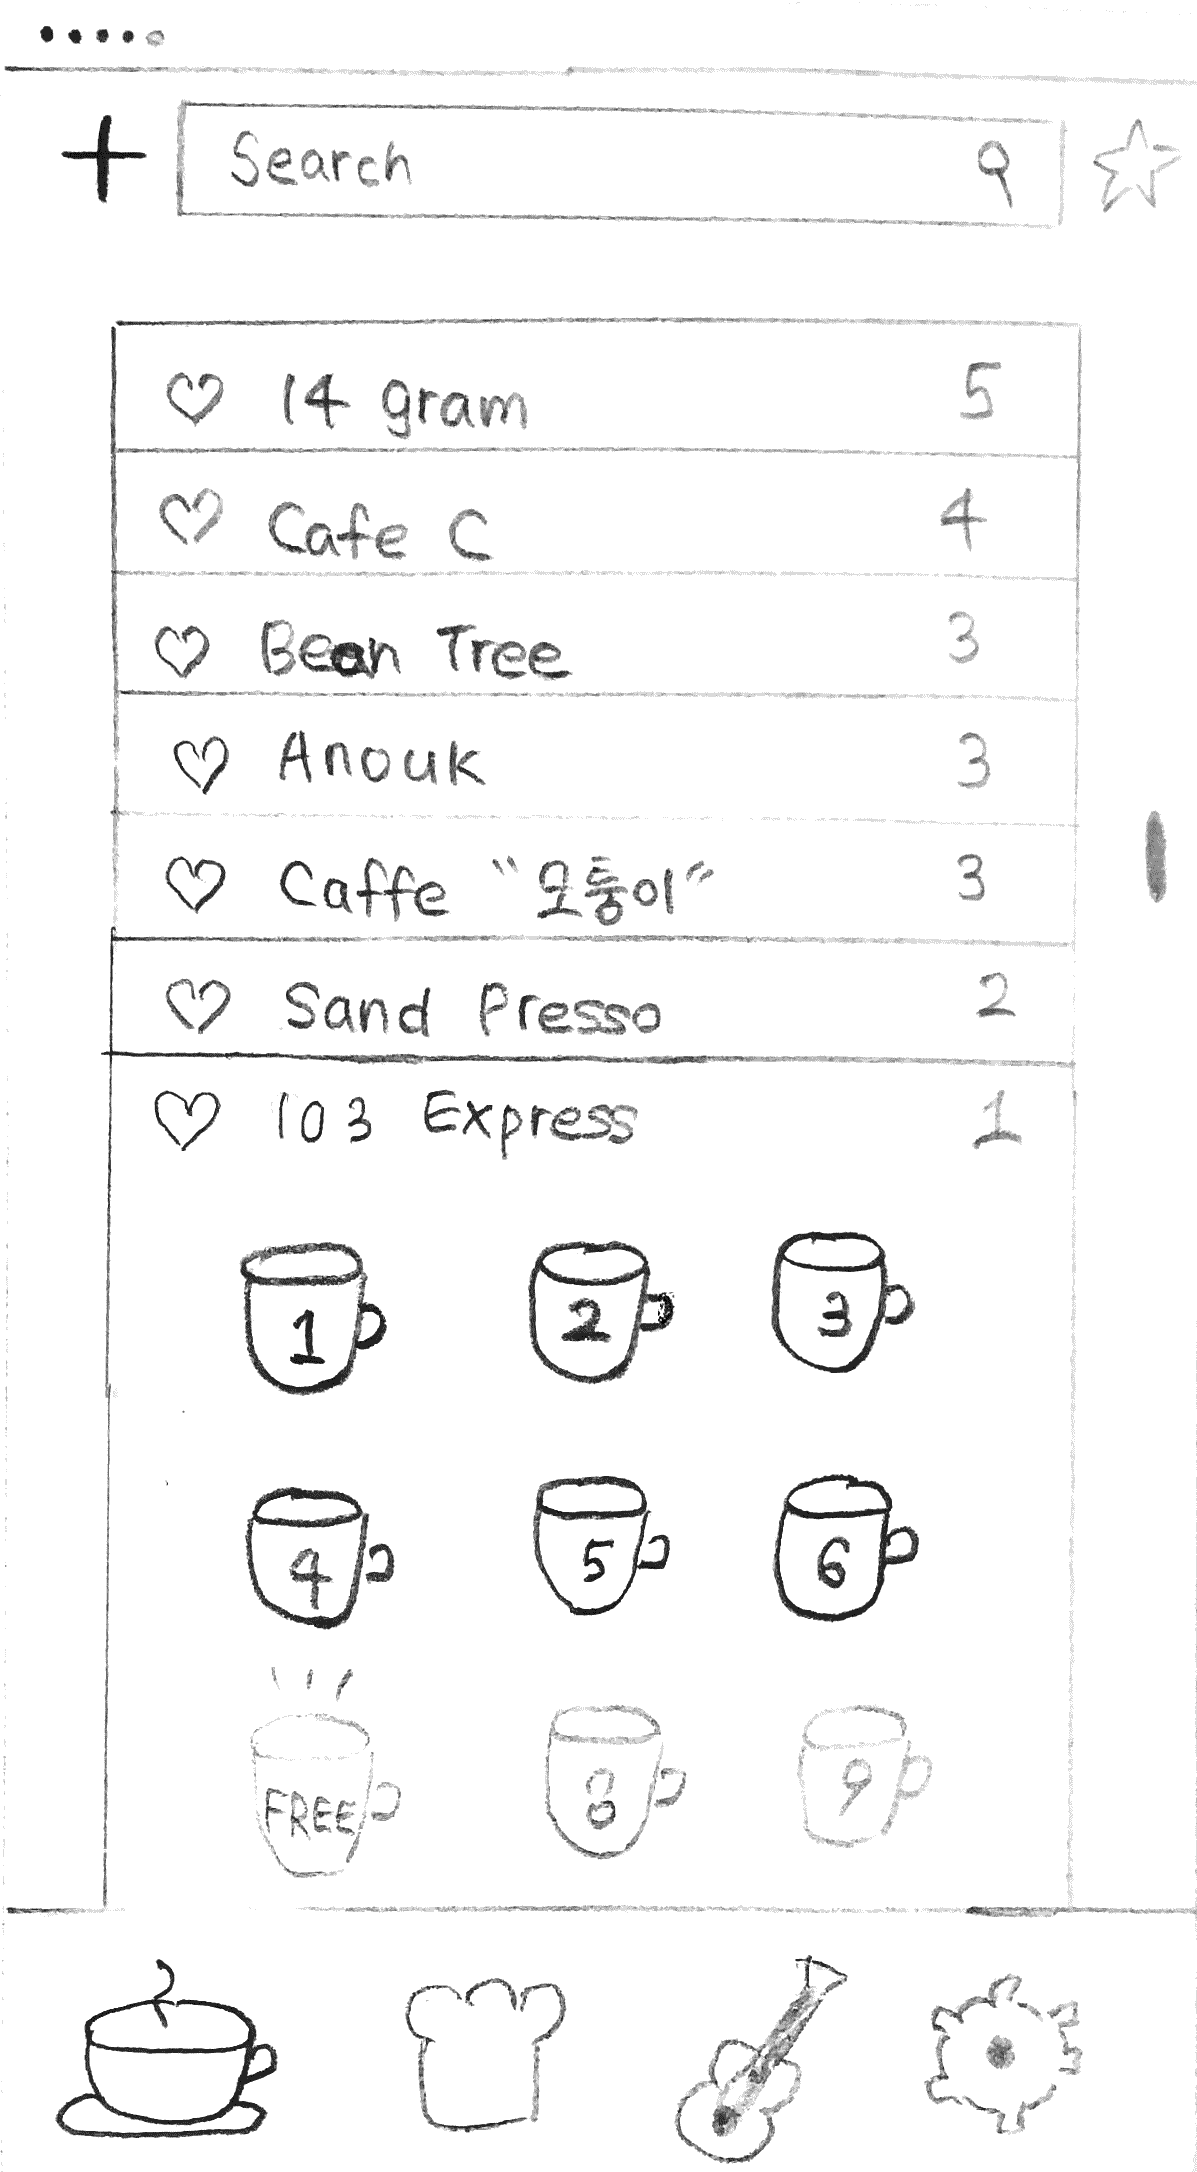 Search
14 gram 5
Cafe C 4
Bean Tree 3
Anouk 3
Caffe "모퉁이" 3
Sand Presso 2
103 Express 1
1 2 3
4 5 6
FREE 8 9